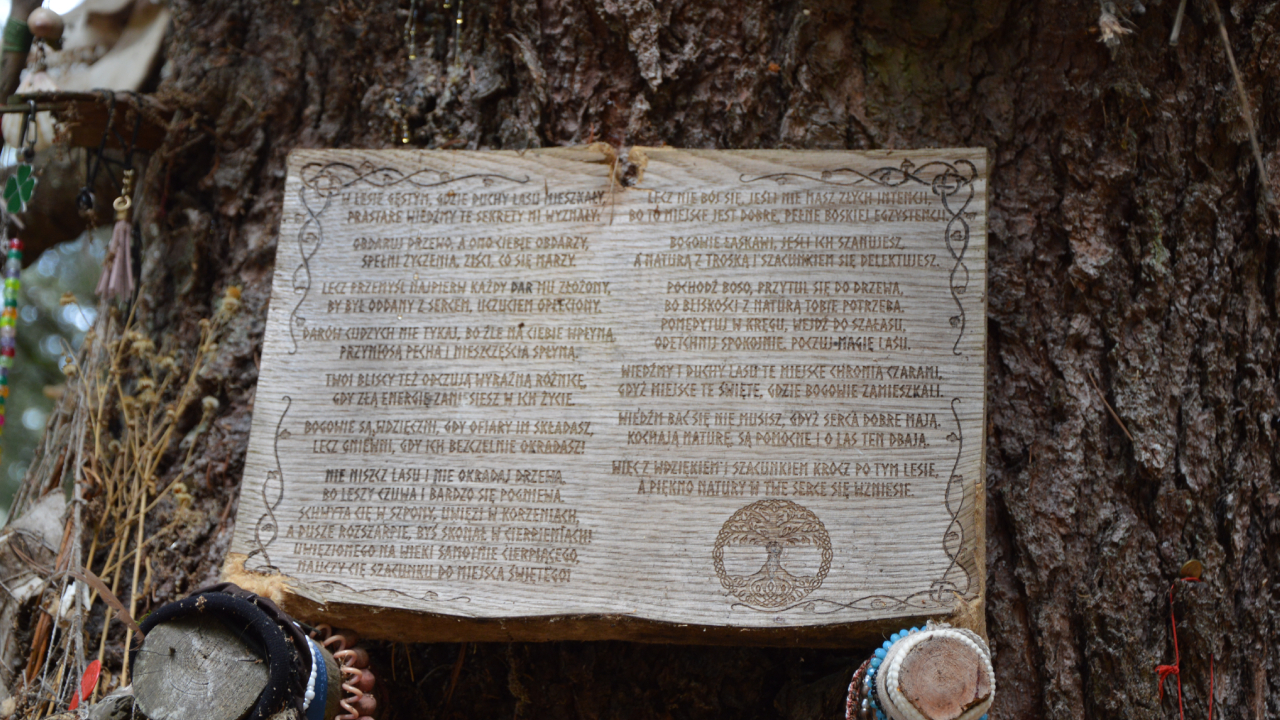 W LESIE GĘSTYM, GDZIE DUCHY LASU MIESZKAŁY,
PRASTARE WIEDŹMY TE SEKRETY MI WYZNAŁY:
OBDARUJ DRZEWO, A ONO CIEBIE OBDARZY,
SPEŁNI ŻYCZENIA, ZIŚCI, CO SIĘ MARZY.
LECZ PRZEMYŚL NAJPIERW KAŻDY DAR MU ZŁOŻONY,
BY BYŁ ODDANY Z SERCEM, UCZUCIEM OPLECIONY.
DARÓW CUDZYCH NIE TYKAJ, BO ŹLE NA CIEBIE WPŁYNĄ,
PRZYNIOSĄ PECHA I NIESZCZĘŚCIA SPŁYNĄ.
TWOI BLISCY TEŻ ODCZUJĄ WYRAŹNĄ RÓŻNICĘ,
GDY ZŁĄ ENERGIĘ ZANIESIESZ W ICH ŻYCIE.
BOGOWIE SĄ WDZIĘCZNI, GDY OFIARY IM SKŁADASZ,
LECZ GNIEWNI, GDY ICH BEZCZELNIE OKRADASZ!
NIE NISZCZ LASU I NIE OKRADAJ DRZEWA,
BO LESZY CZUWA I BARDZO SIĘ POGNIEWA.
SCHWYTA CIĘ W SZPONY, UWIĘZI W KORZENIACH,
A DUSZĘ ROZSZARPIE, BYŚ SKONAŁ W CIERPIENIACH!
UWIĘZIONEGO NA WIEKI SAMOTNIE CIERPIĄCEGO,
NAUCZY CIĘ SZACUNKU DO MIEJSCA ŚWIĘTEGO!
LECZ NIE BÓJ SIĘ, JEŚLI NIE MASZ ZŁYCH INTENCJI,
BO TO MIEJSCE JEST DOBRE, PEŁNE BOSKIEJ EGZYSTENCJI.
BOGOWIE ŁASKAWI, JEŚLI ICH SZANUJESZ,
A NATURĄ Z TROSKĄ I SZACUNKIEM SIĘ DELEKTUJESZ.
POCHODŹ BOSO, PRZYTUL SIĘ DO DRZEWA,
BO BLISKOŚCI Z NATURĄ TOBIE POTRZEBA.
POMEDYTUJ W KRĘGU, WEJDŹ DO SZAŁASU,
ODETCHNIJ SPOKOJNIE, POCZUJ MAGIĘ LASU.
WIEDŹMY I DUCHY LASU TE MIEJSCE CHRONIĄ CZARAMI,
GDYŻ MIEJSCE TE ŚWIĘTE, GDZIE BOGOWIE ZAMIESZKALI.
WIEDŹM BAĆ SIĘ NIE MUSISZ, GDYŻ SERCA DOBRE MAJĄ,
KOCHAJĄ NATURĘ, SĄ POMOCNE I O LAS TEN DBAJĄ.
WIĘC Z WDZIĘKIEM I SZACUNKIEM KROCZ PO TYM LESIE,
A PIĘKNO NATURY W TWE SERCE SIĘ WZNIESIE.